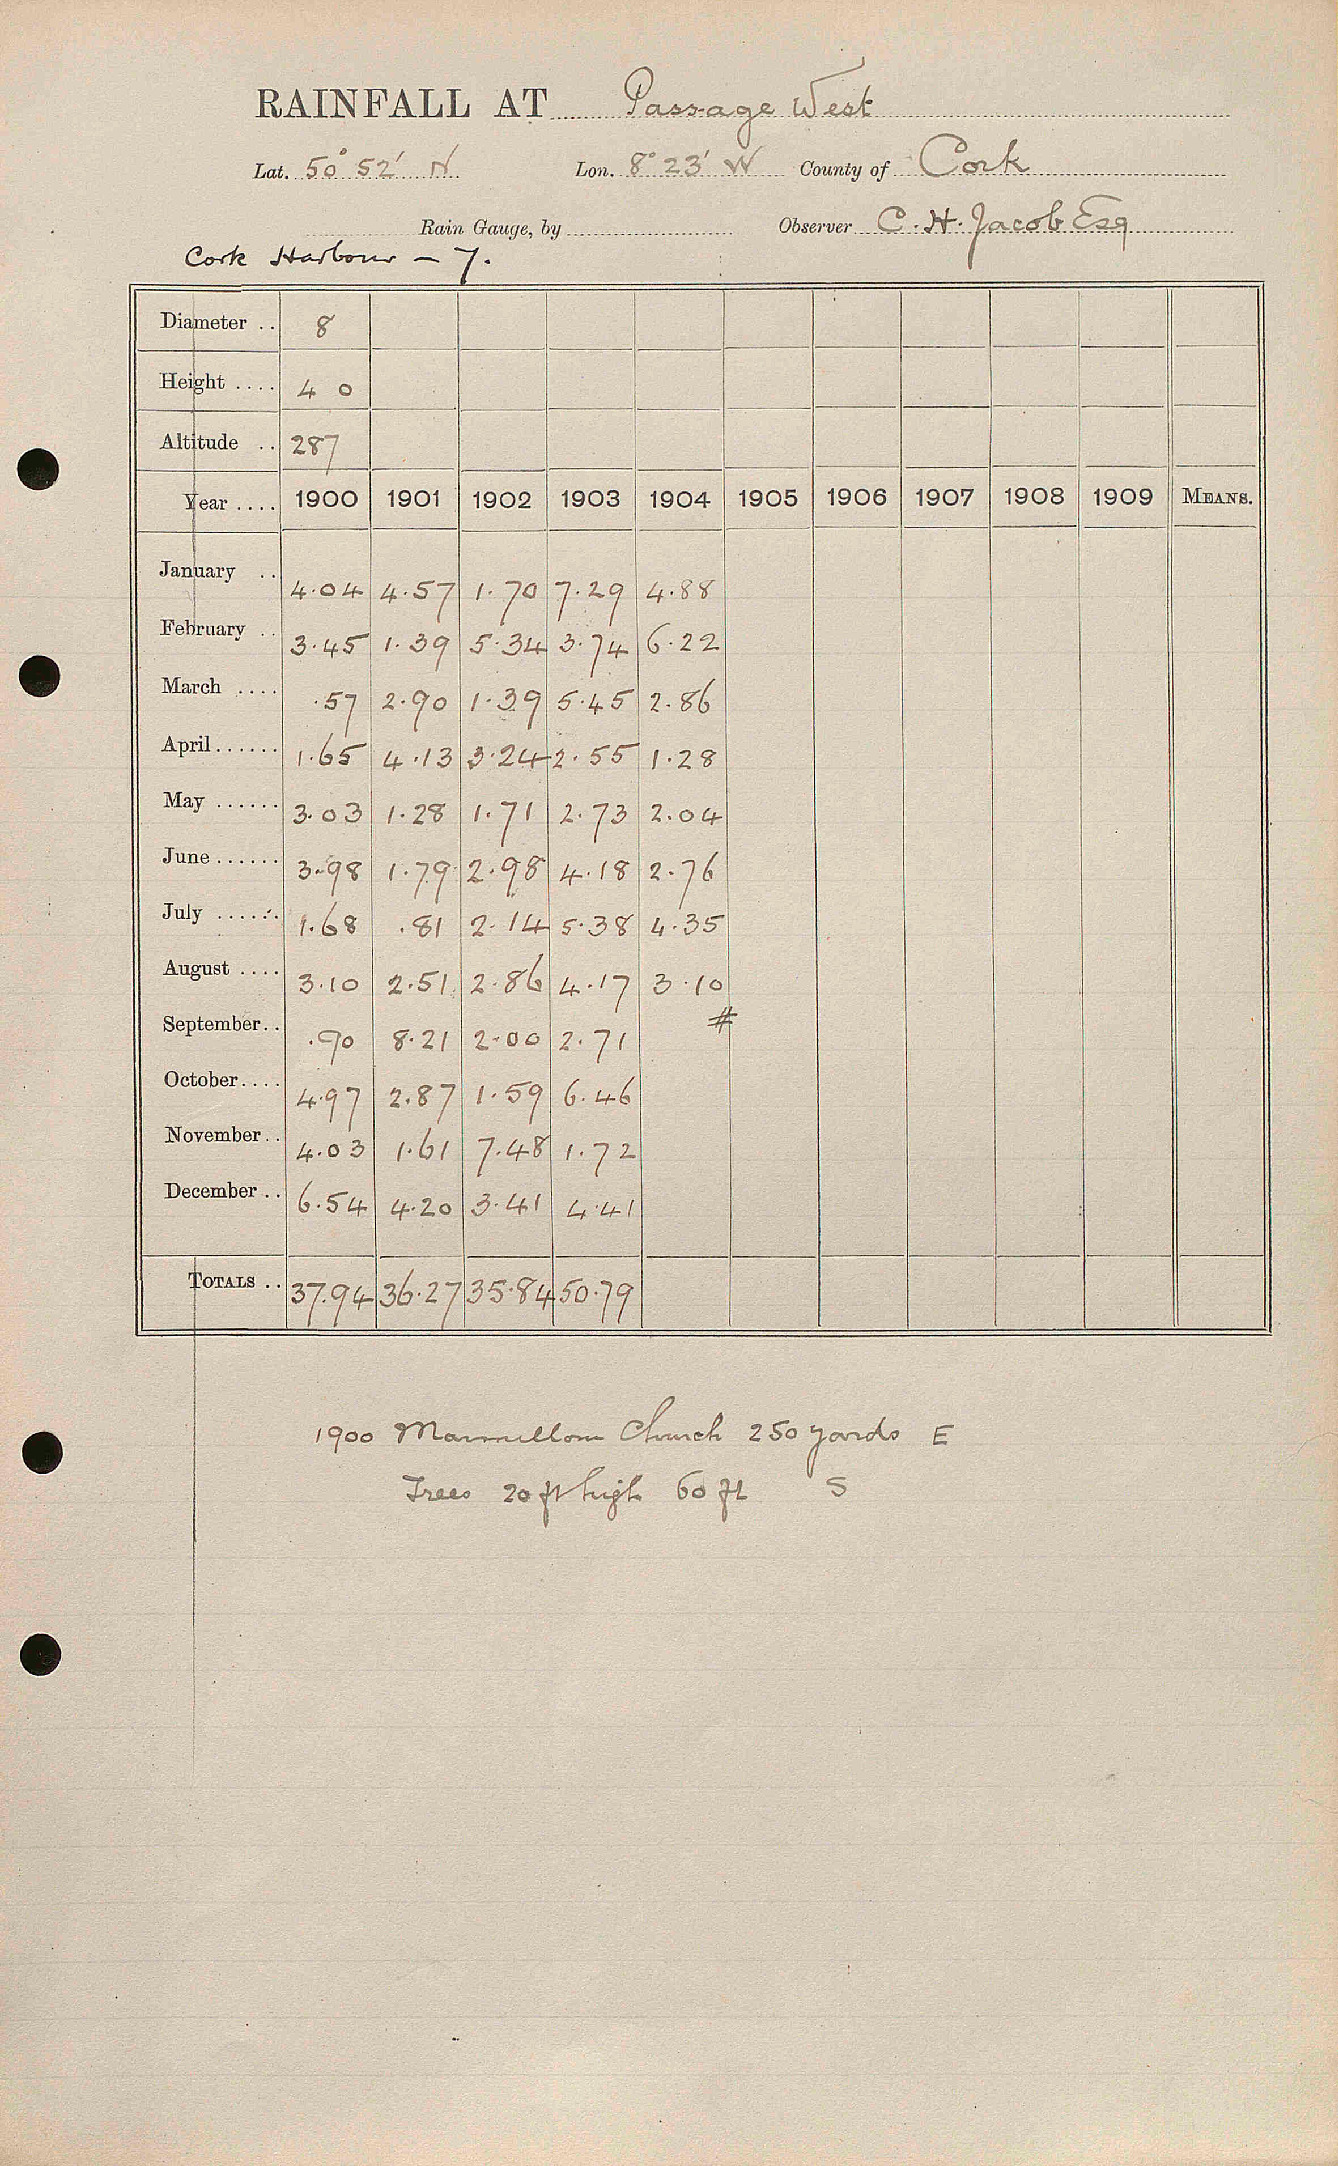 RAINFALL AT Passage West
Lat. 50° 52' N Lon. 8° 23' W County of Cork
Rain Gauge, by Observer C. H. Jacob Esq
Cork Harbour - 7.
Diameter .. 8
Height .... 4 0
Altitude .. 287
Year .... 1900 1901 1902 1903 1904 1905 1906 1907 1908 1909 MEANS.
January .. 4.04 4.57 1.70 7.29 4.88
February .. 3.45 1.39 5.34 3.74 6.22
March .... .57 2.90 1.39 5.45 2.86
April...... 1.65 4.13 3.24 2.55 1.28
May ...... 3.03 1.28 1.71 2.73 2.04
June...... 3.98 1.79 2.98 4.18 2.76
July ...... 1.68 .81 2.14 5.38 4.35
August .... 3.10 2.51 2.86 4.17 3.10
September.. .90 8.21 2.00 2.71 #
October.... 4.97 2.87 1.59 6.46
November.. 4.03 1.61 7.48 1.72
December .. 6.54 4.20 3.41 4.41
TOTALS .. 37.94 36.27 35.84 50.79
1900 Church 250 yards E
Trees 20 ft high 60 ft S